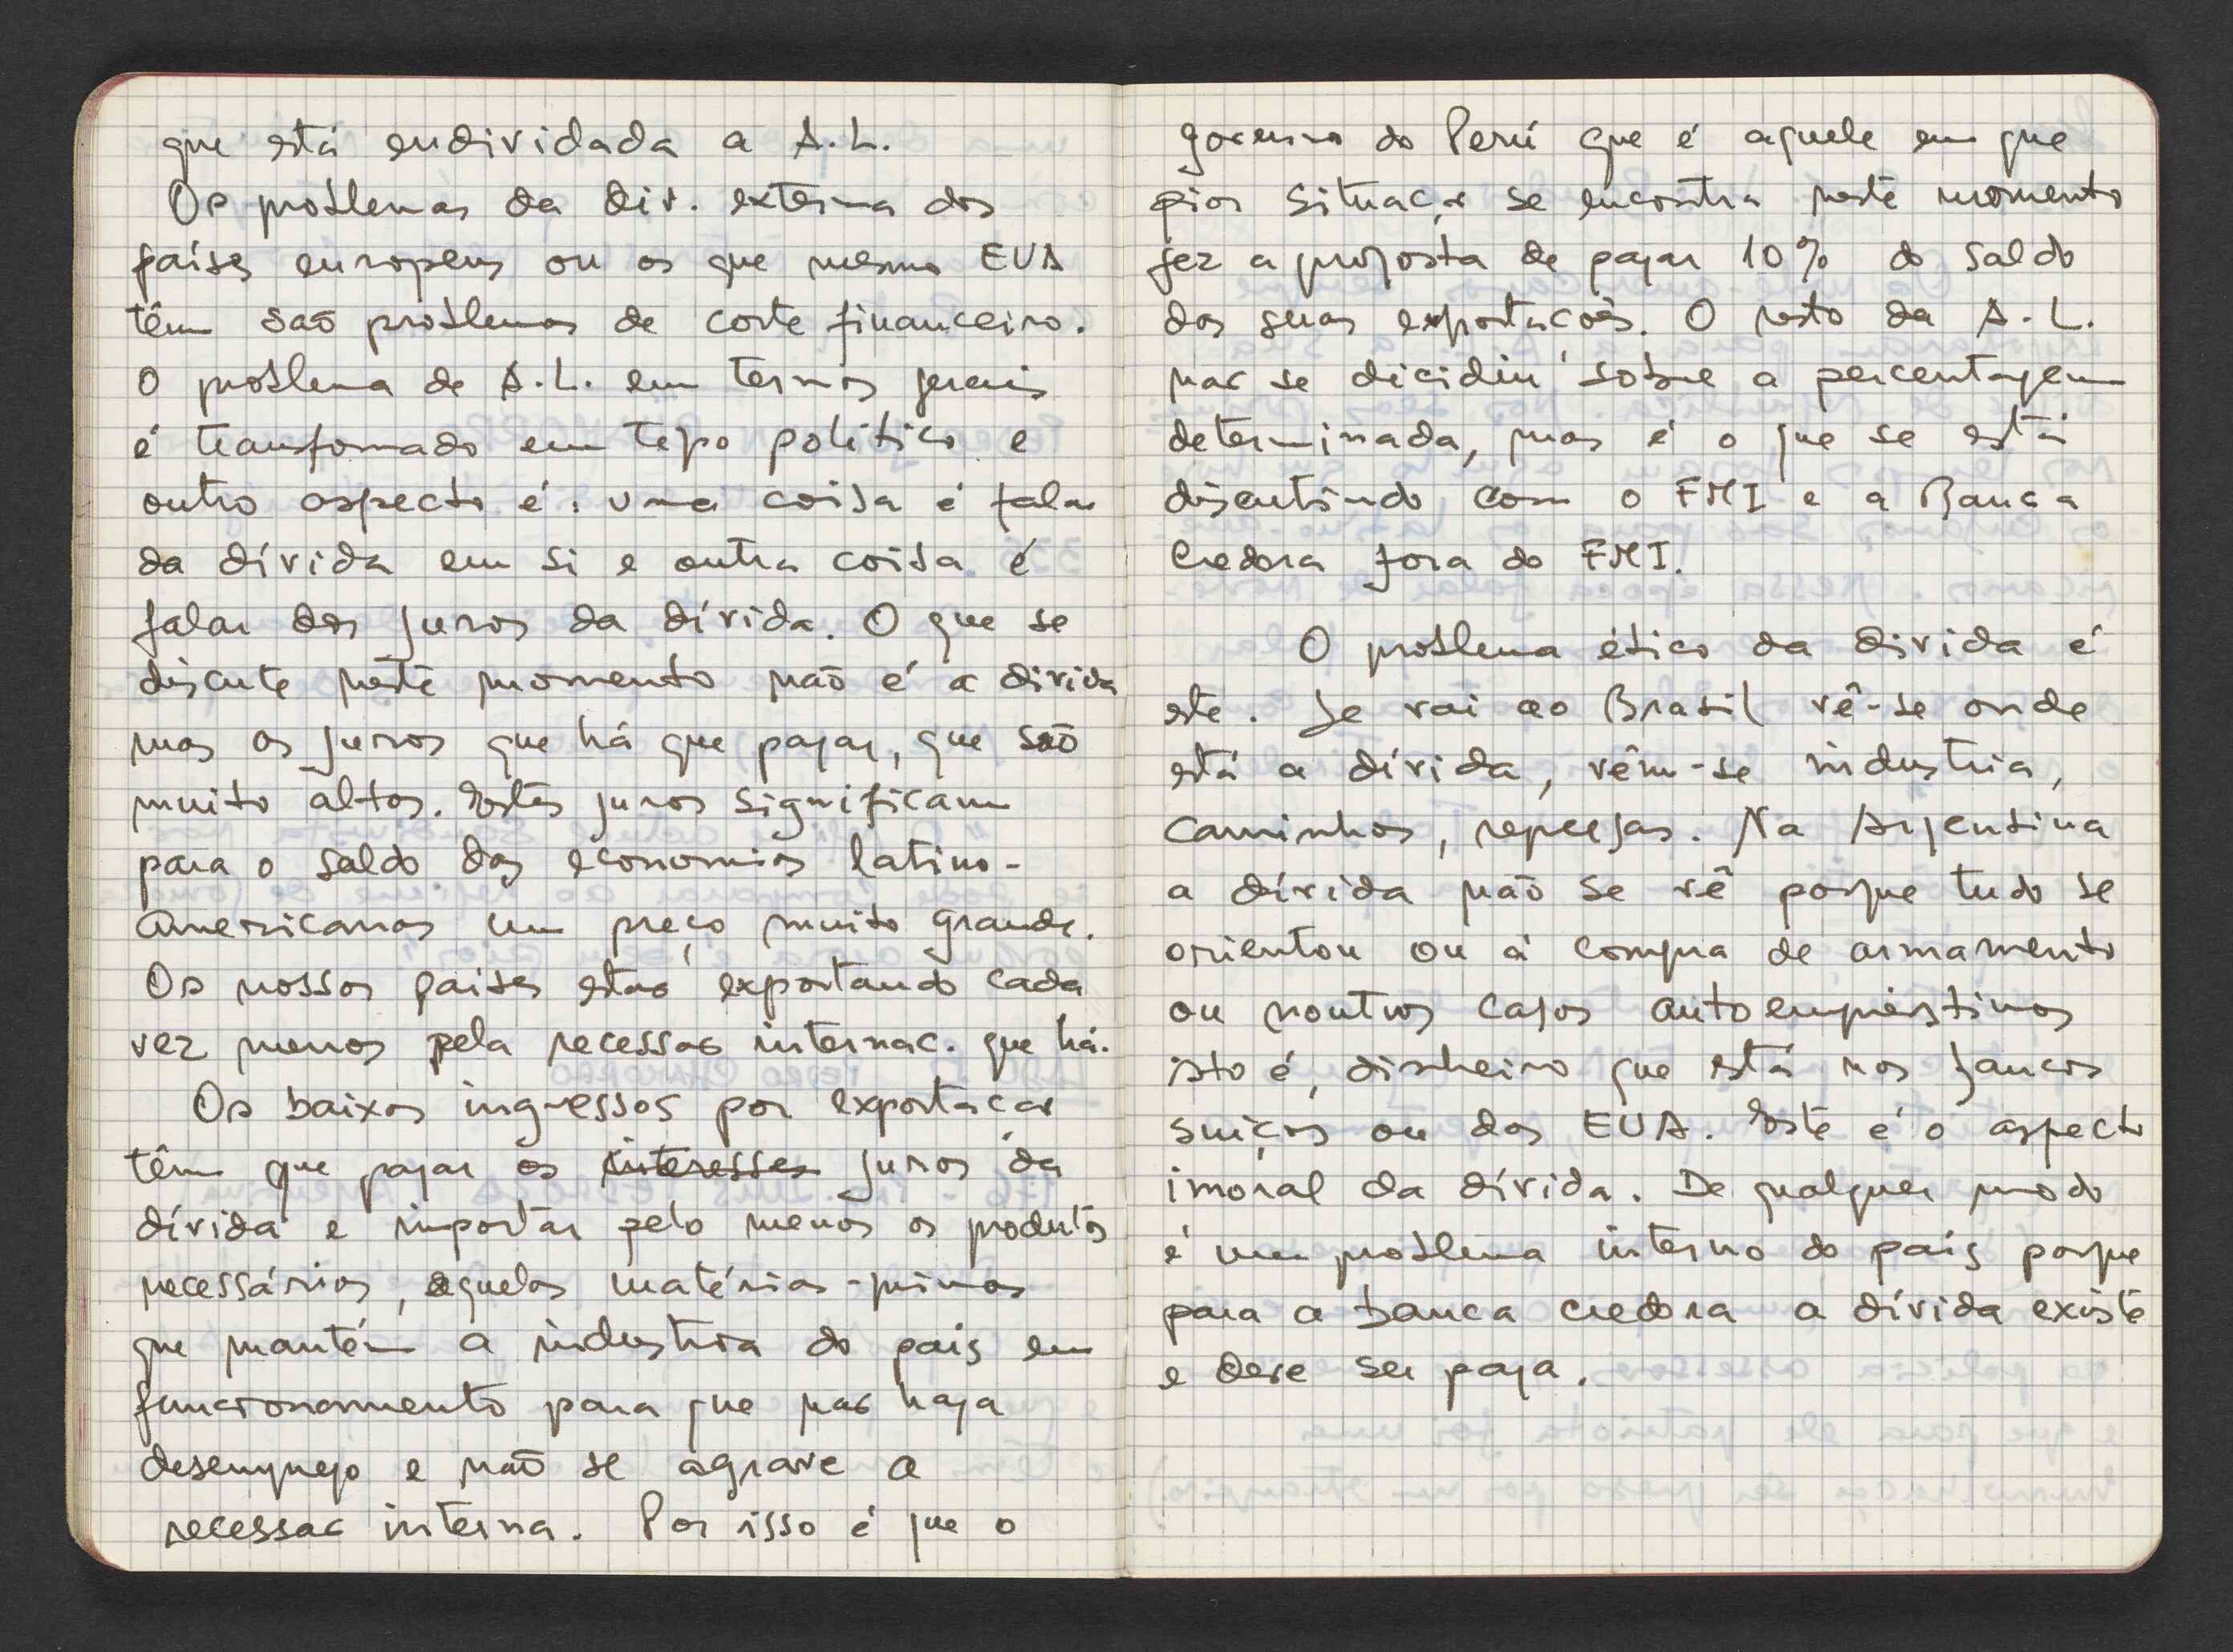 que está endividada a A.L.
Os problemas da div. externa dos
países europeus ou os que mesmo EUA
têm são problemas de corte financeiro.
O problema de A.L. em termos gerais
é transfomado em tipo político e
outro aspecto é: uma coisa é falar
da dívida em si e outra coisa é
falar dos juros da dívida. O que se
discute neste momento não é a divida
mas os juros que há que pagar, que são
muito altos. Estes juros significam
para o saldo das economias latino-
americanas um preço muito grande.
Os nossos paises estão exportando cada
vez menos pela recessão internac. que há.
Os baixos ingressos por exportação
têm que pagar os interesses juros da
dívida e importar pelo menos os produtos
necessários, aquelas matérias-primas
que mantém a industria do pais em
funcionamento para que não haja
desemprego e não se agrave a
recessão interna. Por isso é que o
governo do Perú que é aquele em que
pior situação se encontra neste momento
fez a proposta de pagar 10% do saldo
das suas exportações. O resto da A.L.
não se dicidiu sobre a percentagem
determinada, mas é o que se está
discutindo com o FMI e a Banca
Credora fora do FMI.
O problema ético da divida é
este. Se vai ao Brasil vê-se onde
está a dívida, vêm-se industria,
caminhos, represas. Na Argentina
a dívida não se vê porque tudo se
orientou ou à compra de armamento
ou noutros casos autoempréstimos
isto é, dinheiro que está nos bancos
suiços ou dos EUA. Este é o aspecto
imoral da dívida. De qualquer modo
é um problema interno do pais porque
para a banca credora a dívida existe
e deve ser paga.